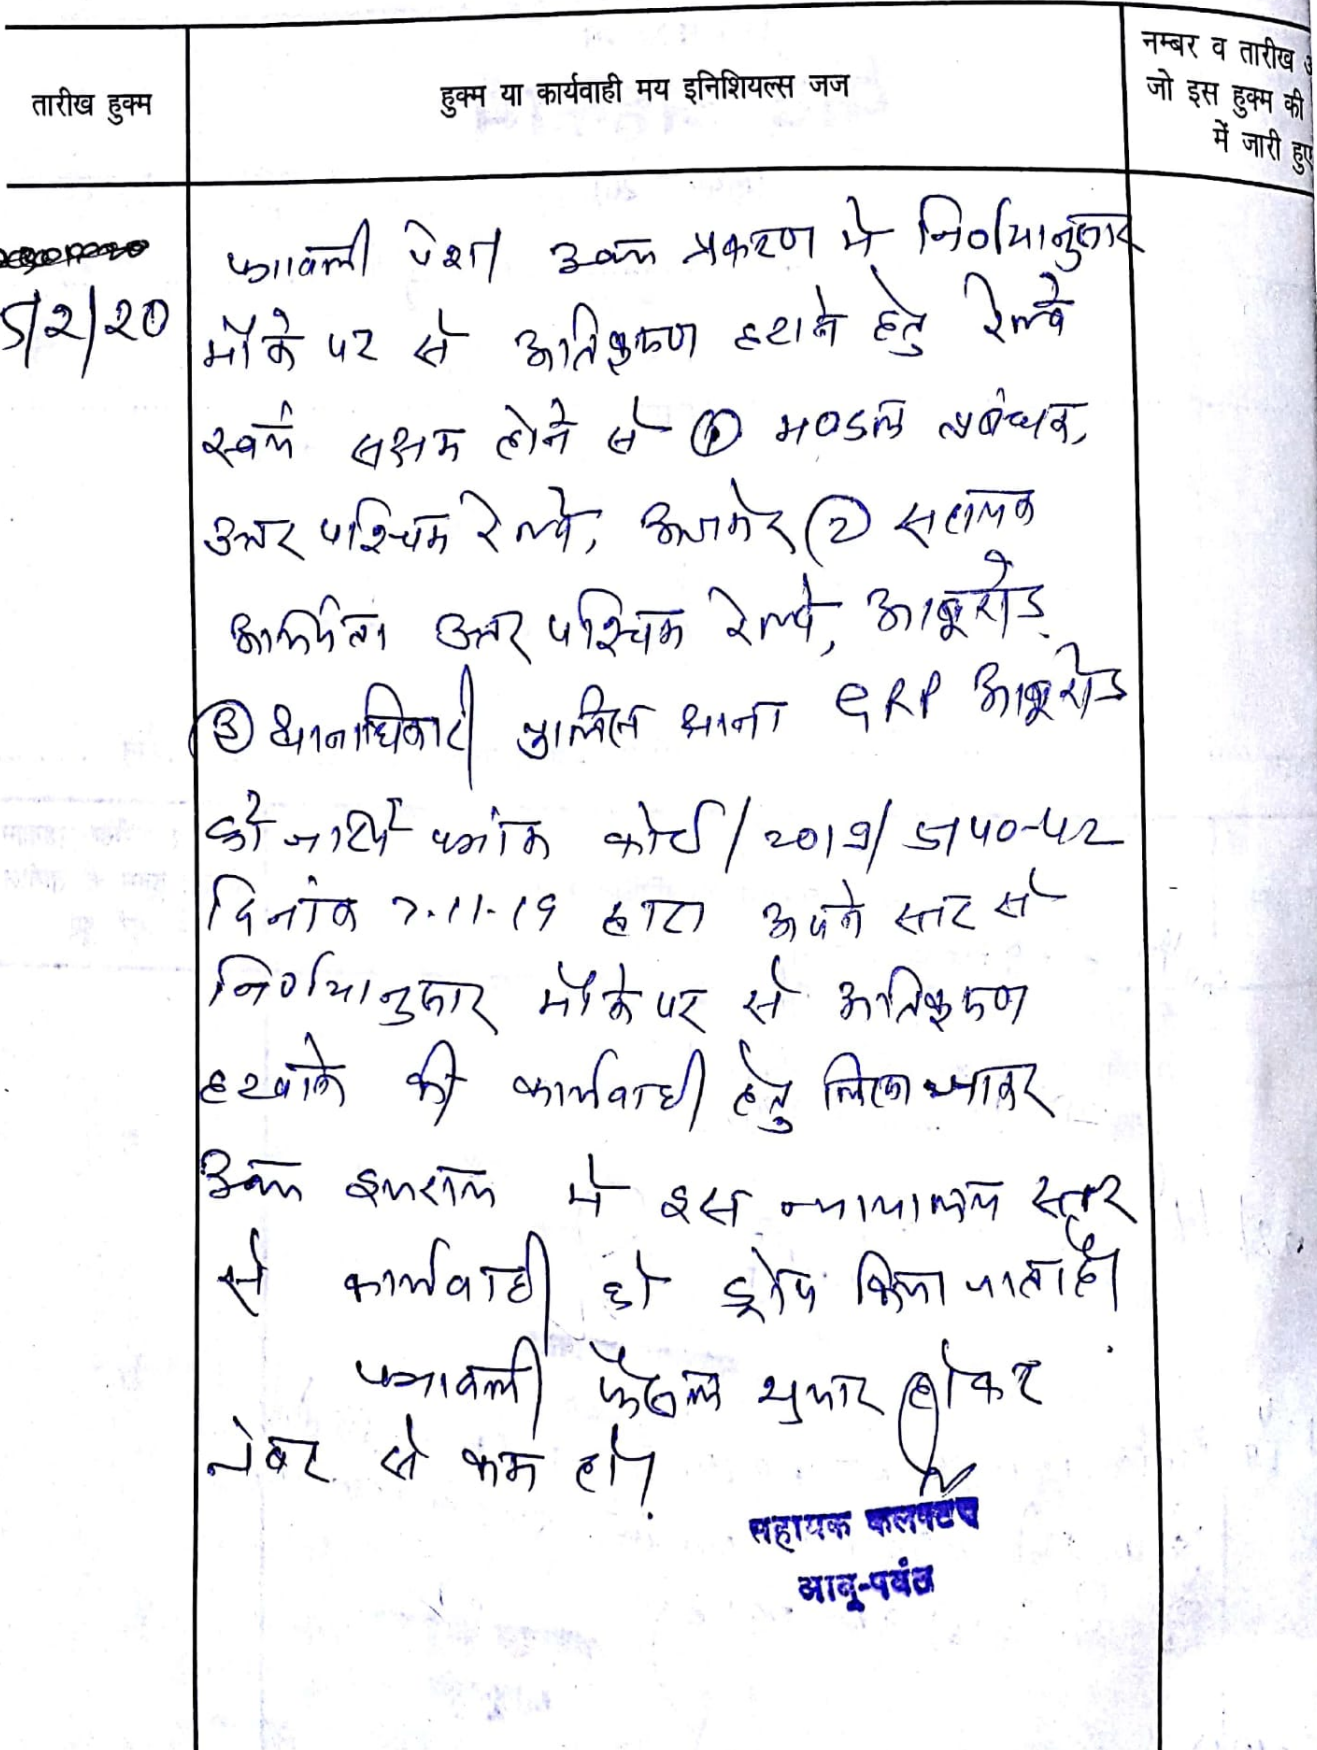 तारीख हुक्म
हुक्म या कार्यवाही मय इनिशियल्स जज
नम्बर व तारीख
जो इस हुक्म की
में जारी हुए
5/2/20
पत्रावली पेश। उक्त प्रकरण में निर्णयानुसार
मौके पर से अतिक्रमण हटाने हेतु रेल्वे
स्वयं सक्षम होने से ① मण्डल प्रबंधक,
उत्तर पश्चिम रेल्वे, अजमेर ② सहायक
अभियंता उत्तर पश्चिम रेल्वे, आबूरोड
③ थानाधिकारी पुलिस थाना GRP आबूरोड
को जरिये क्रमांक कोर्ट/2019/5140-42
दिनांक 7.11.19 द्वारा अपने स्तर से
निर्णयानुसार मौके पर से अतिक्रमण
हटवाने की कार्यवाही हेतु लिखा जाकर
उक्त इजराय में इस न्यायालय स्तर
से कार्यवाही को ड्रोप किया जाता है।
पत्रावली फैसल शुमार होकर
नंबर से कम हो।
सहायक कलक्टर
आबू-पर्वत